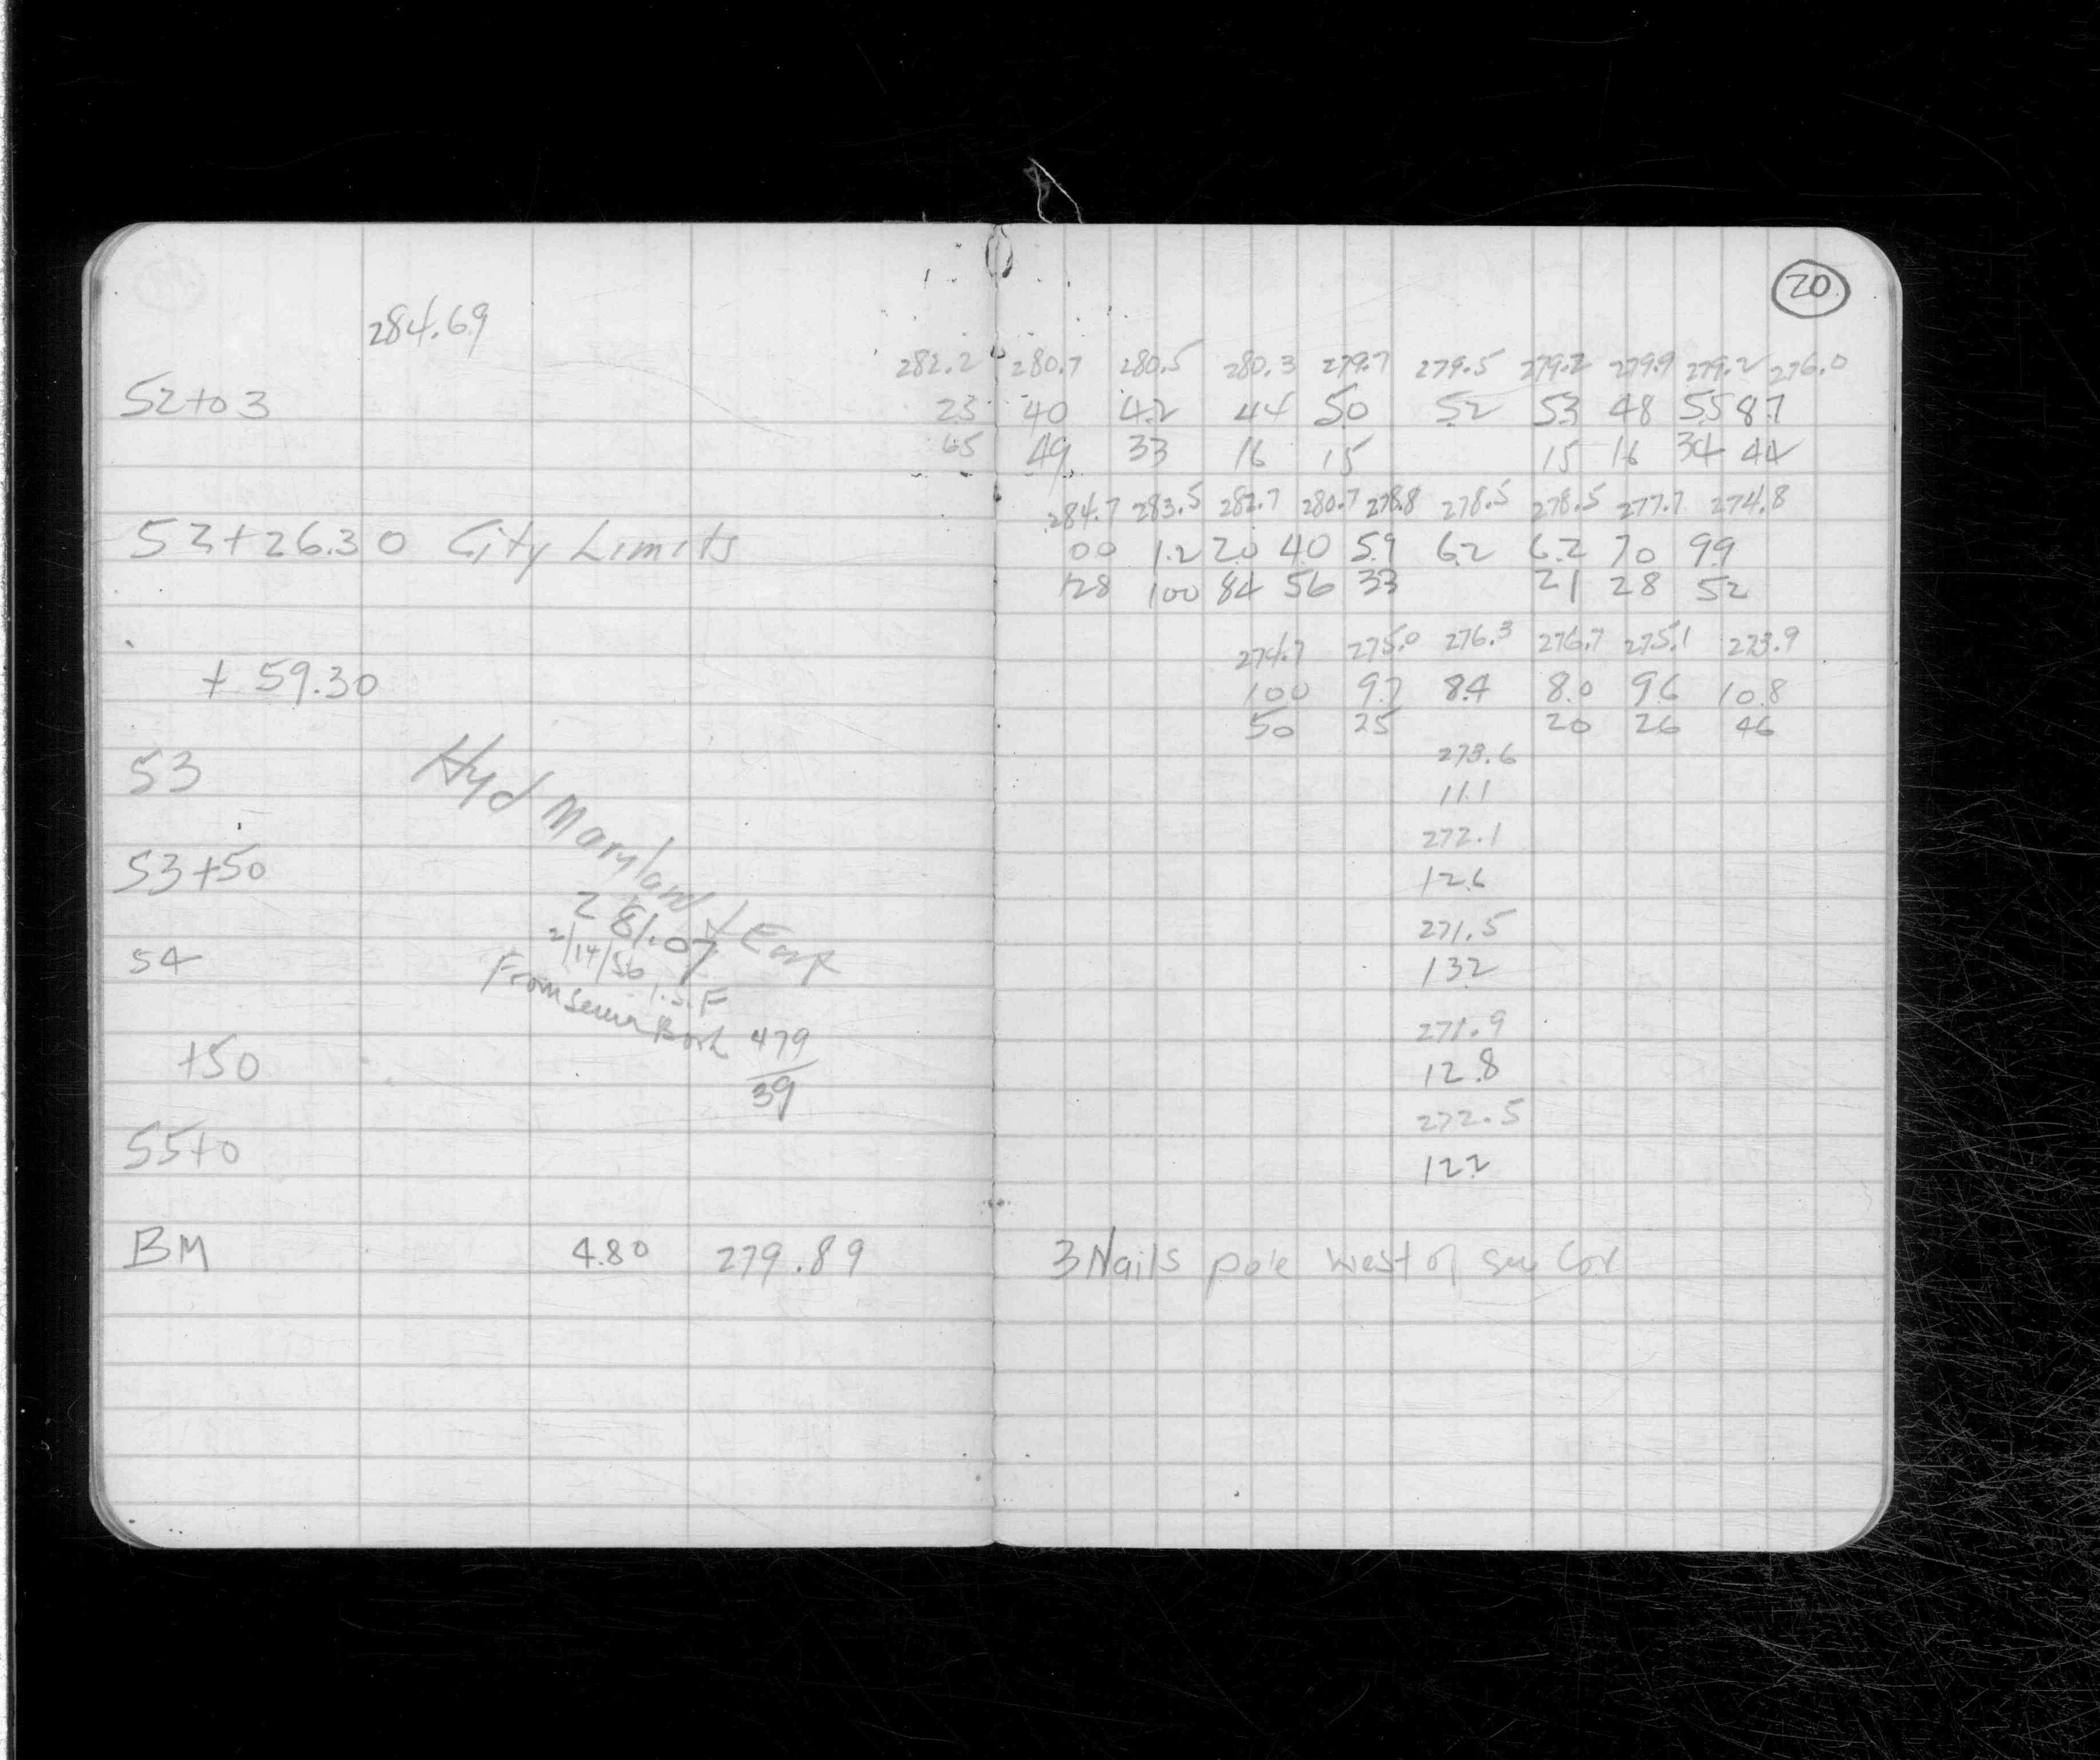 20
284.69
282.2 280.7 280.5 280.3 279.7 279.5 279.2 279.9 279.2 276.0
52+03 23 40 42 44 50 52 53 48 55 87
65 49 33 16 15 15 16 34 44
284.7 283.5 282.7 280.7 278.8 278.5 278.5 277.7 274.8
52+26.30 City Limits 00 1.2 20 40 59 62 62 70 99
128 100 84 56 33 21 28 52
274.7 275.0 276.3 276.7 275.1 273.9
+ 59.30 100 97 84 8.0 96 10.8
50 25 20 26 46
273.6
53 11.1
Hyd Maryland &
272.1
53+50 12.6
281.07
271.5
2/14/56 I.S.F
54 13.2
From Sewer Book 479/39
271.9
+50 12.8
272.5
55+0 12.2
BM 4.80 279.89 3 Nails pole west of sw Cor